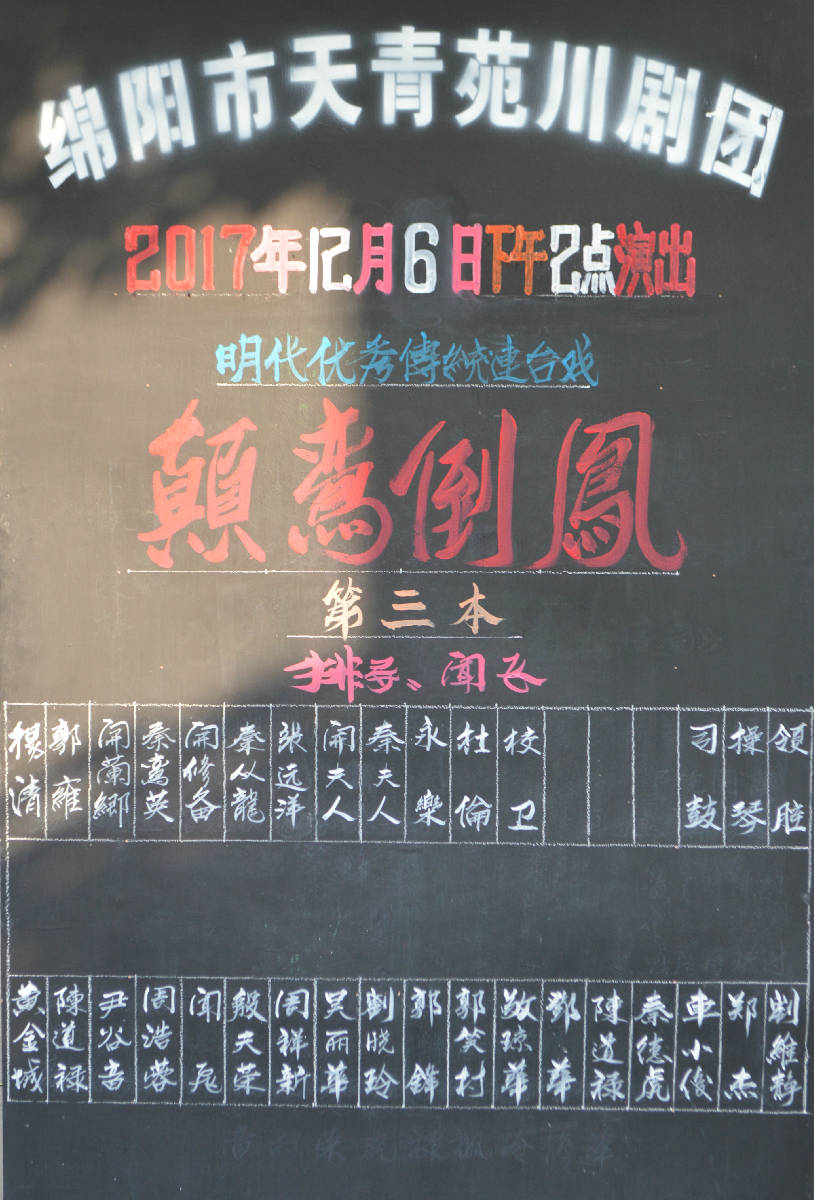 绵阳市天青苑川剧团
2017年12月6日下午2点演出
明代优秀傳統連台戏
顛鸞倒鳳
第三本
排导、闻瓦
楊清 郭雍 闻蘭鄉 秦鸞英 闻修备 秦从龍 張远洋 闻夫人 秦夫人 永樂 杜倫 校卫 司鼓 操琴 领腔
黄金城 陳道禄 尹谷音 周浩蓉 闻瓦 殷夫荣 周祥新 吴丽華 劉晓玲 郭鋒 郭笑村 敬琼華 鄧華 陳道禄 秦德虎 車小俊 郑杰 劉維靜